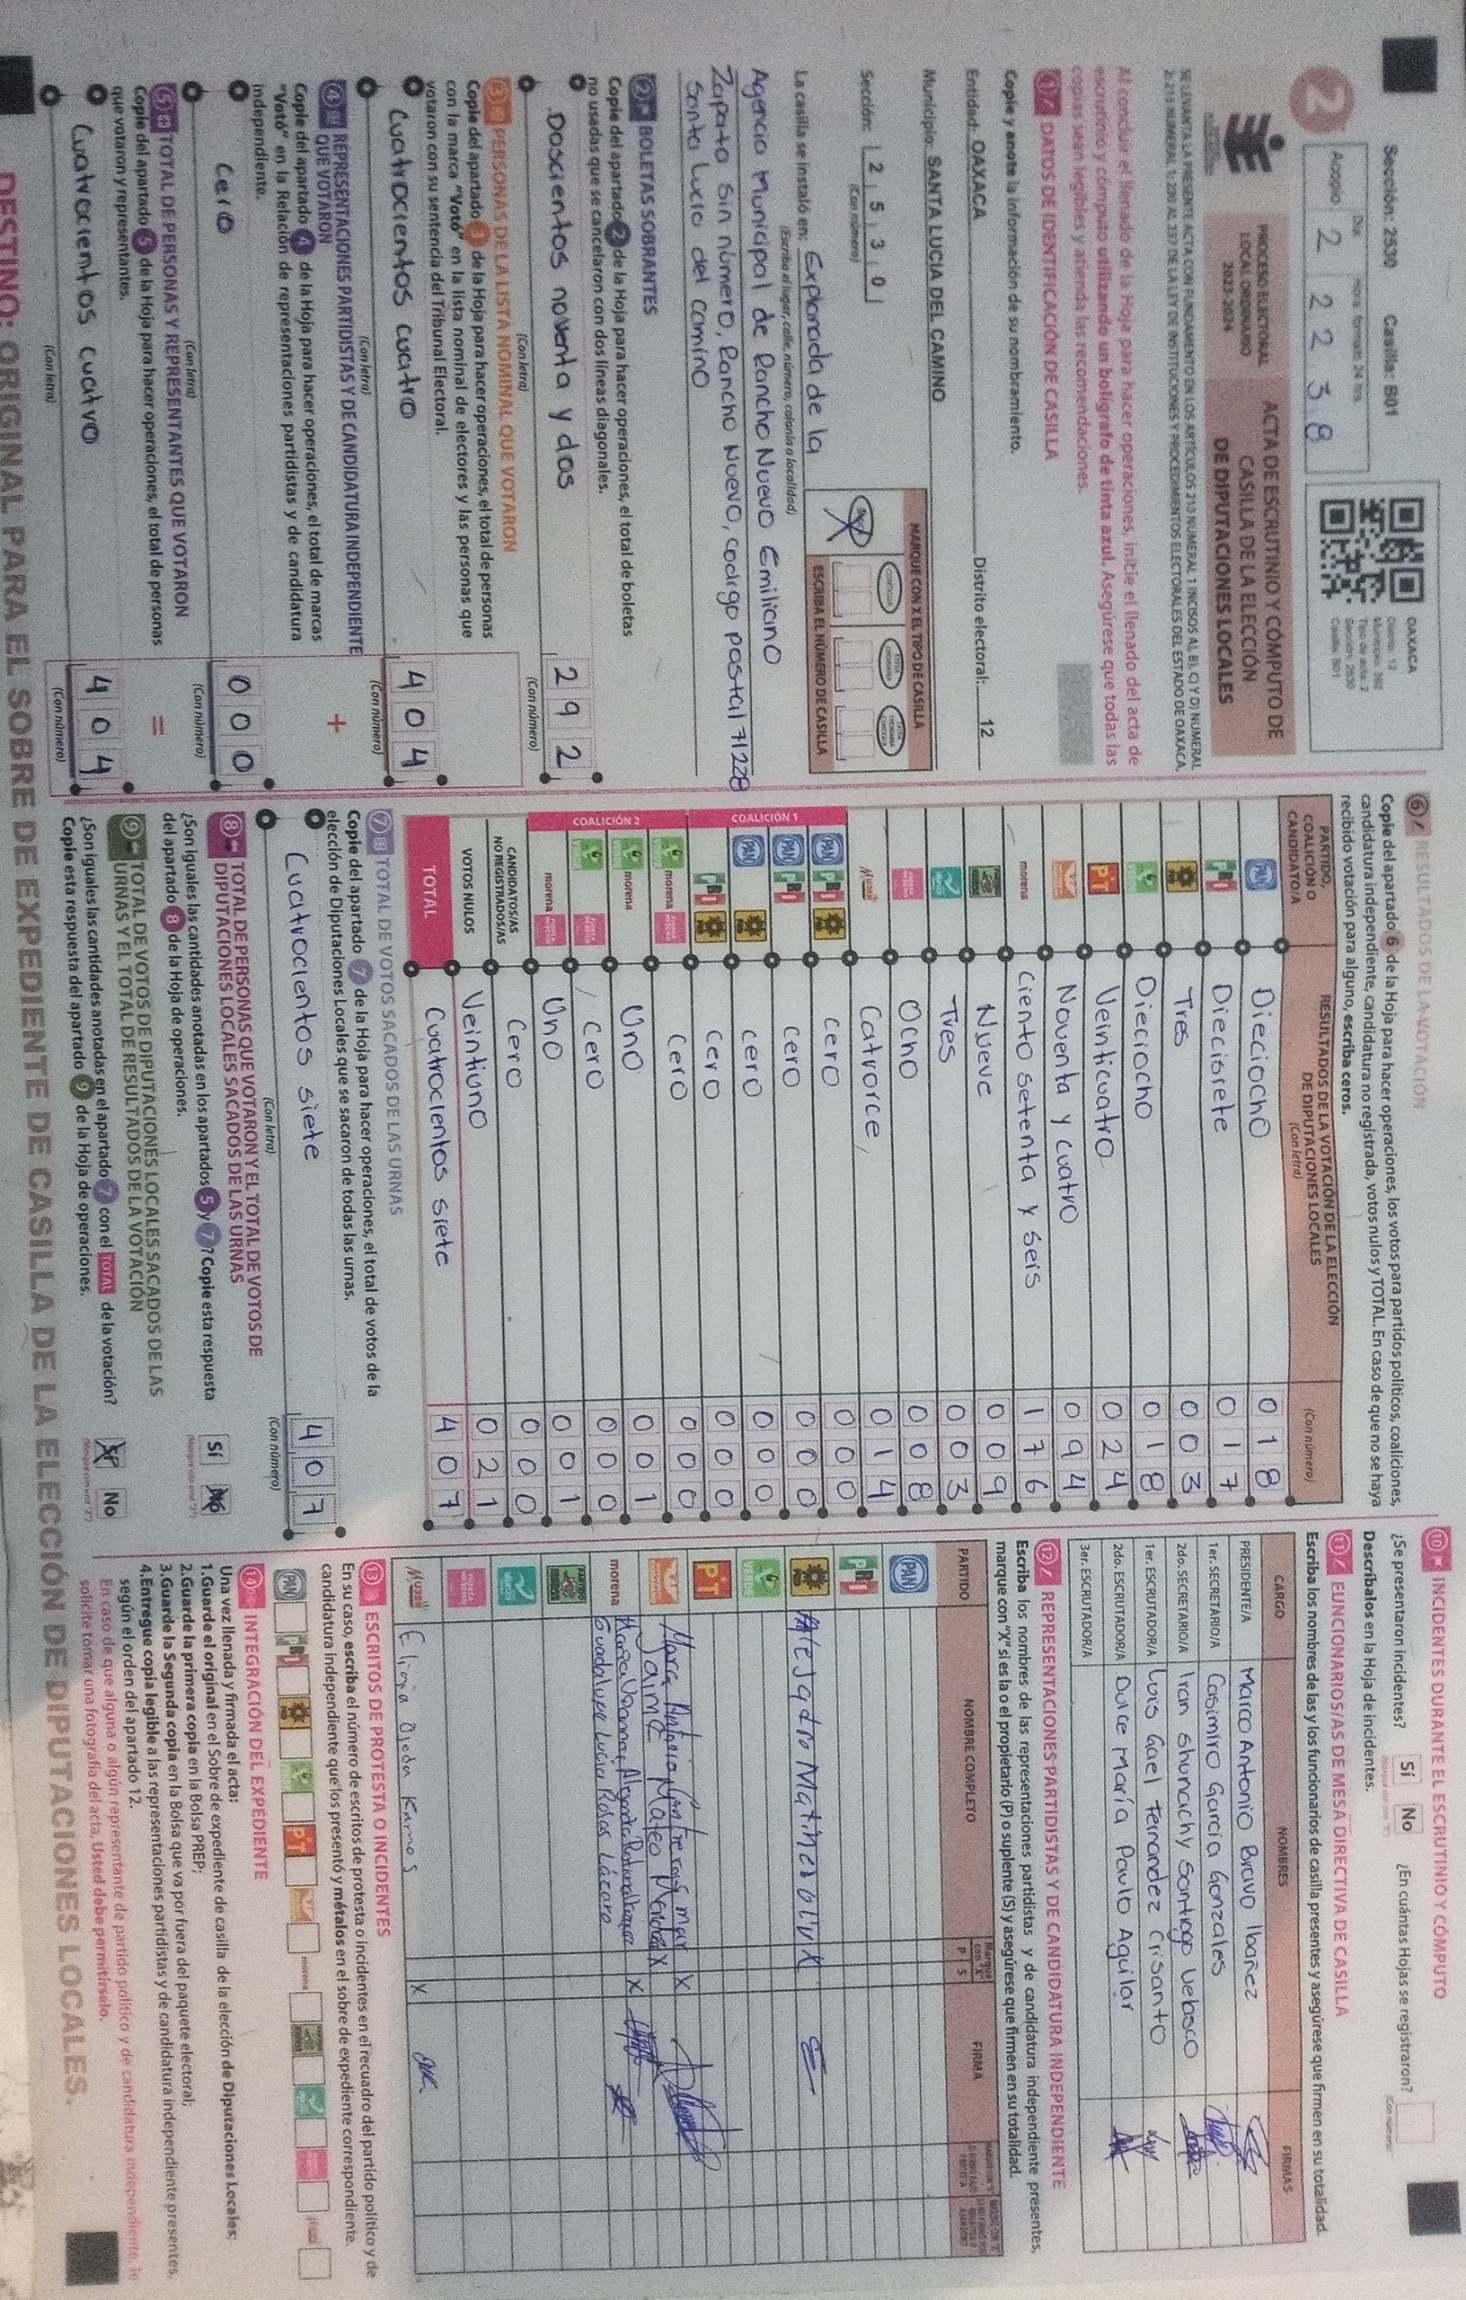 Sección: 2530 Casilla: B01
2
Acopio
Día
Hora: formato 24 hrs.
2 2 2 3 8
OAXACA
Distrito: 12
Tipo de acta: 2
Sección: 2530
Casilla: B01
PROCESO ELECTORAL
LOCAL ORDINARIO
2023-2024
ACTA DE ESCRUTINIO Y CÓMPUTO DE
CASILLA DE LA ELECCIÓN
DE DIPUTACIONES LOCALES
Al concluir el llenado de la Hoja para hacer operaciones, inicie el llenado del acta de
escrutinio y cómputo utilizando un bolígrafo de tinta azul. Asegúrese que todas las
copias sean legibles y atienda las recomendaciones.
1 DATOS DE IDENTIFICACIÓN DE CASILLA
Copie y anote la información de su nombramiento.
Entidad: OAXACA Distrito electoral: 12
Municipio: SANTA LUCIA DEL CAMINO
Sección: 2 5 3 0
(Con número)
MARQUE CON X EL TIPO DE CASILLA
ESCRIBA EL NÚMERO DE CASILLA
La casilla se instaló en: Explanada de la
(Escriba el lugar, calle, número, colonia o localidad)
Agencia Municipal de Rancho Nuevo Emiliano
Zapata sin número, Rancho Nuevo, codigo postal 71228
Santa Lucia del camino
2 BOLETAS SOBRANTES
Copie del apartado 2 de la Hoja para hacer operaciones, el total de boletas
no usadas que se cancelaron con dos líneas diagonales.
Doscientos noventa y dos 2 9 2
(Con letra) (Con número)
3 PERSONAS DE LA LISTA NOMINAL QUE VOTARON
Copie del apartado 3 de la Hoja para hacer operaciones, el total de personas
con la marca "Votó" en la lista nominal de electores y las personas que
votaron con su sentencia del Tribunal Electoral.
Cuatrocientos cuatro 4 0 4
(Con letra) (Con número)
4 REPRESENTACIONES PARTIDISTAS Y DE CANDIDATURA INDEPENDIENTE
QUE VOTARON
+
Copie del apartado 4 de la Hoja para hacer operaciones, el total de marcas
"Votó" en la Relación de representaciones partidistas y de candidatura
independiente.
Cero 0 0 0
(Con letra) (Con número)
5 TOTAL DE PERSONAS Y REPRESENTANTES QUE VOTARON
=
Copie del apartado 5 de la Hoja para hacer operaciones, el total de personas
que votaron y representantes.
Cuatrocientos cuatro 4 0 4
(Con letra) (Con número)
6 RESULTADOS DE LA VOTACIÓN
Copie del apartado 6 de la Hoja para hacer operaciones, los votos para partidos políticos, coaliciones,
candidatura independiente, candidatura no registrada, votos nulos y TOTAL. En caso de que no se haya
recibido votación para alguno, escriba ceros.
PARTIDO,
COALICIÓN O
CANDIDATO/A
RESULTADOS DE LA VOTACIÓN DE LA ELECCIÓN
DE DIPUTACIONES LOCALES
(Con letra)
(Con número)
PAN Dieciocho 0 1 8
PRI Diecisiete 0 1 7
Tres 0 0 3
Dieciocho 0 1 8
PT Veinticuatro 0 2 4
Noventa y cuatro 0 9 4
morena Ciento setenta y seis 1 7 6
Nueve 0 0 9
Tres 0 0 3
Ocho 0 0 8
Catrorce 0 1 4
COALICIÓN 1
PAN PRI cero 0 0 0
PAN PRI cero 0 0 0
PAN cero 0 0 0
PRI cero 0 0 0
COALICIÓN 2
morena cero 0 0 0
morena Uno 0 0 1
cero 0 0 0
morena Uno 0 0 1
CANDIDATOS/AS
NO REGISTRADOS/AS
Cero 0 0 0
VOTOS NULOS Veintiuno 0 2 1
TOTAL Cuatrocientos siete 4 0 7
7 TOTAL DE VOTOS SACADOS DE LAS URNAS
Copie del apartado 7 de la Hoja para hacer operaciones, el total de votos de la
elección de Diputaciones Locales que se sacaron de todas las urnas.
Cuatrocientos siete 4 0 7
(Con letra) (Con número)
8 TOTAL DE PERSONAS QUE VOTARON Y EL TOTAL DE VOTOS DE
DIPUTACIONES LOCALES SACADOS DE LAS URNAS
¿Son iguales las cantidades anotadas en los apartados 5 y 7? Copie esta respuesta
del apartado 8 de la Hoja de operaciones.
Sí No
9 TOTAL DE VOTOS DE DIPUTACIONES LOCALES SACADOS DE LAS
URNAS Y EL TOTAL DE RESULTADOS DE LA VOTACIÓN
¿Son iguales las cantidades anotadas en el apartado 7 con el TOTAL de la votación?
Copie esta respuesta del apartado 9 de la Hoja de operaciones.
Sí No
10 INCIDENTES DURANTE EL ESCRUTINIO Y CÓMPUTO
¿Se presentaron incidentes? Sí No ¿En cuántas Hojas se registraron?
Descríbalos en la Hoja de incidentes.
11 FUNCIONARIOS/AS DE MESA DIRECTIVA DE CASILLA
Escriba los nombres de las y los funcionarios de casilla presentes y asegúrese que firmen en su totalidad.
CARGO NOMBRES FIRMAS
PRESIDENTE/A Marco Antonio Bravo Ibañez
1er. SECRETARIO/A Casimiro Garcia Gonzales
2do. SECRETARIO/A Iran Shunachy Santiago Velasco
1er. ESCRUTADOR/A Luis Gael Fernandez Crisanto
2do. ESCRUTADOR/A Dulce María Paulo Aguilar
3er. ESCRUTADOR/A
12 REPRESENTACIONES PARTIDISTAS Y DE CANDIDATURA INDEPENDIENTE
Escriba los nombres de las representaciones partidistas y de candidatura independiente presentes,
marque con "X" si es la o el propietario (P) o suplente (S) y asegúrese que firmen en su totalidad.
PARTIDO NOMBRE COMPLETO P S FIRMA
PAN
PRI
PT
X
morena Guadalupe Lucia Rosas Lázaro X
X
13 ESCRITOS DE PROTESTA O INCIDENTES
En su caso, escriba el número de escritos de protesta o incidentes en el recuadro del partido político y de
candidatura independiente que los presentó y métalos en el sobre de expediente correspondiente.
PAN PRI PT morena
14 INTEGRACIÓN DEL EXPEDIENTE
Una vez llenada y firmada el acta:
1.Guarde el original en el Sobre de expediente de casilla de la elección de Diputaciones Locales;
2.Guarde la primera copia en la Bolsa PREP;
3.Guarde la Segunda copia en la Bolsa que va por fuera del paquete electoral;
4.Entregue copia legible a las representaciones partidistas y de candidatura independiente presentes,
según el orden del apartado 12.
En caso de que alguna o algún representante de partido político y de candidatura independiente, le
solicite tomar una fotografía del acta, Usted debe permitírselo.
DESTINO: ORIGINAL PARA EL SOBRE DE EXPEDIENTE DE CASILLA DE LA ELECCIÓN DE DIPUTACIONES LOCALES.